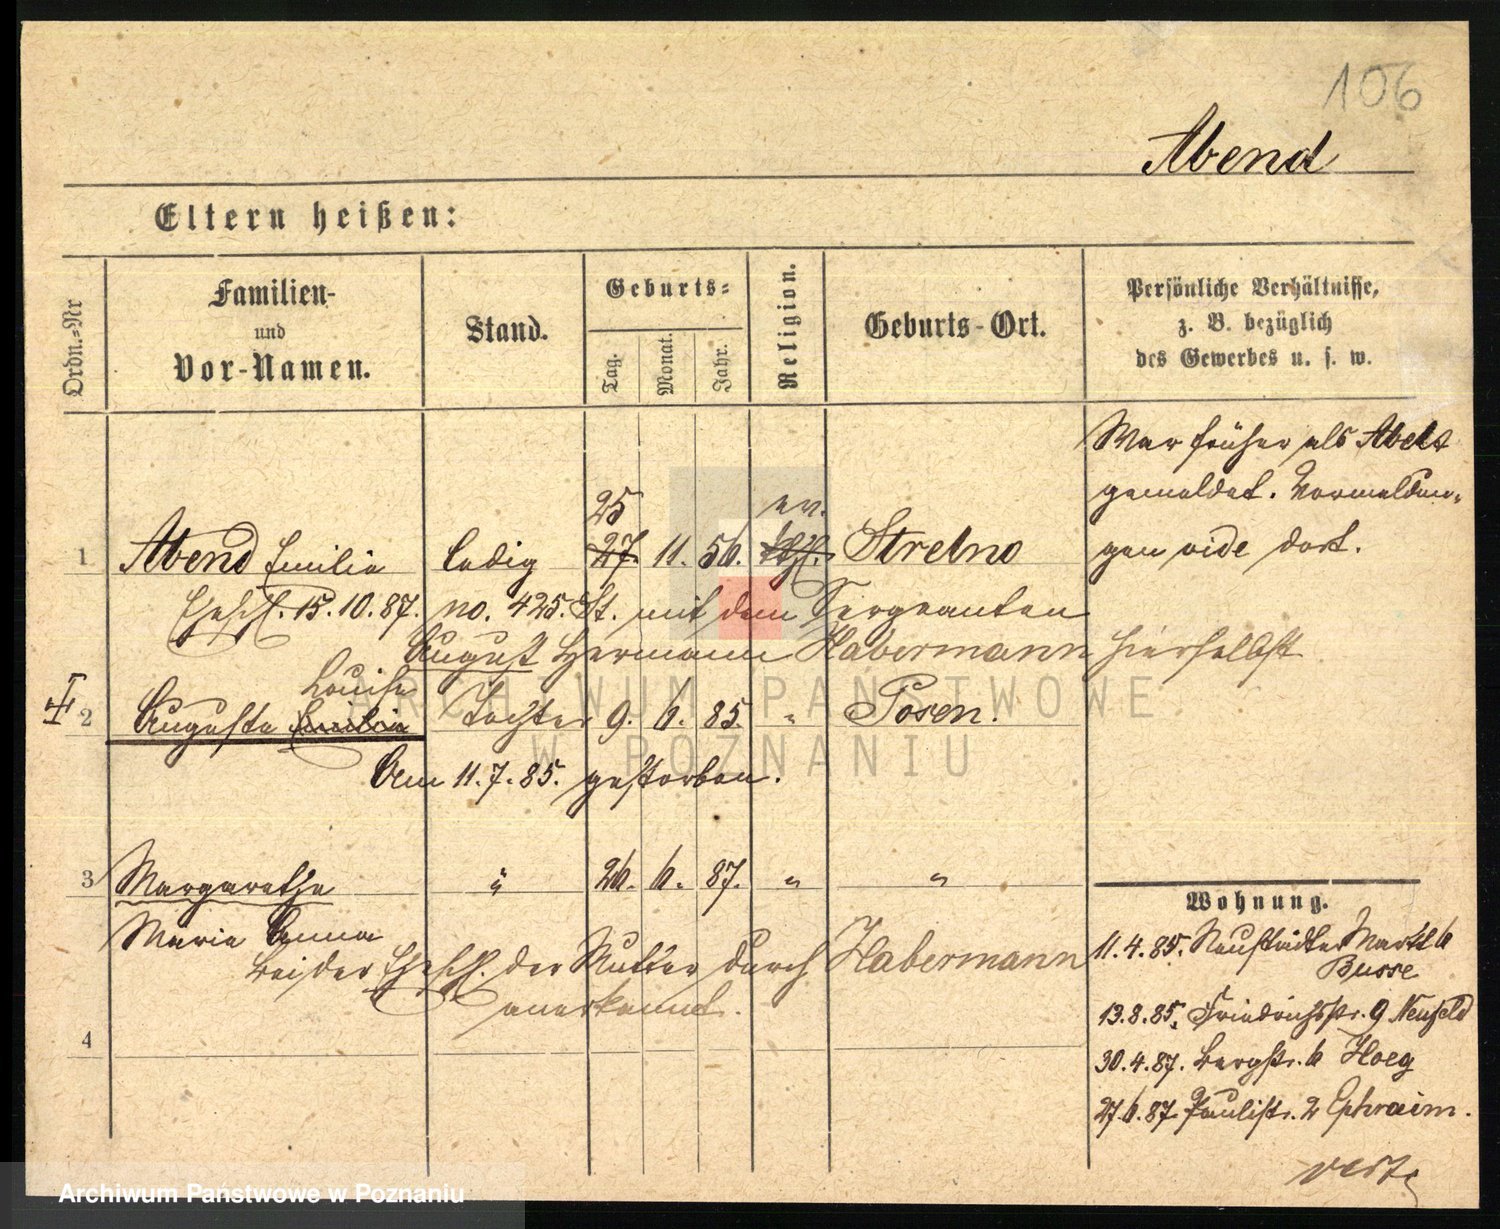 106
Abend
Eltern heißen:
Ordn.-Nr
Familien-
und
Vor-Namen.
Stand.
Geburts-
Tag.
Monat.
Jahr.
Religion.
Geburts-Ort.
Persönliche Verhältnisse,
z. B. bezüglich
des Gewerbes u. s. w.
War früher als Abelt
gemeldet. Vormeldun-
gen vide dort.
25 ev.
1 Abend Emilie ledig 27. 11. 56. kth. Strelno
Eheschl. 15.10.87. no. 425. St. mit dem Sergeanten
August Hermann Habermann hierselbst
Louise
2 Auguste Emilie Tochter 9. 6. 85. " Posen.
Am 11.7.85. gestorben.
3 Margarethe " 26. 6. 87. " "
Marie Anna
bei der Eheschl. der Mutter durch Habermann
anerkannt.
4
Wohnung.
11.4.85. Neustädter Markt 6
Busse
13.8.85. Friedrichstr. 9 Neufeld
30.4.87. Bergstr. 6 Hoeg
27.6.87 Paulistr. 2 Ephraim.
vert.
ARCHIWUM PAŃSTWOWE
W POZNANIU
Archiwum Państwowe w Poznaniu